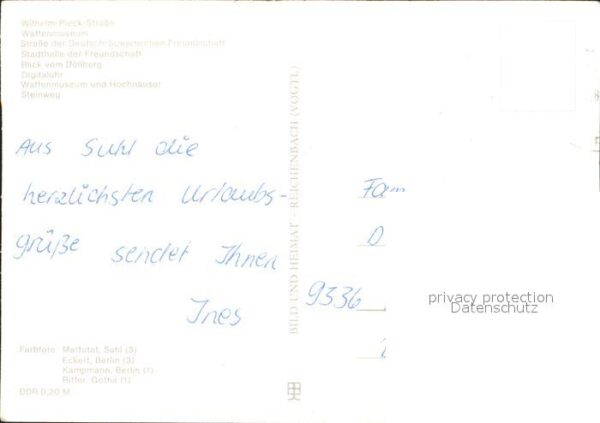 Wilhelm-Pieck-Straße
Waffenmuseum
Straße der Deutsch-Sowjetischen Freundschaft
Stadthalle der Freundschaft
Blick vom Döllberg
Digitaluhr
Waffenmuseum und Hochhäuser
Steinweg
Aus Suhl die
herzlichsten Urlaubs-
grüße sendet Ihnen
Ines
Farbfoto: Matfutat, Suhl (3)
Eckelt, Berlin (3)
Kampmann, Berlin (1)
Ritter, Gotha (1)
DDR 0,20 M
BILD UND HEIMAT · REICHENBACH (VOGTL)
Fam
D
9336
privacy protection
Datenschutz